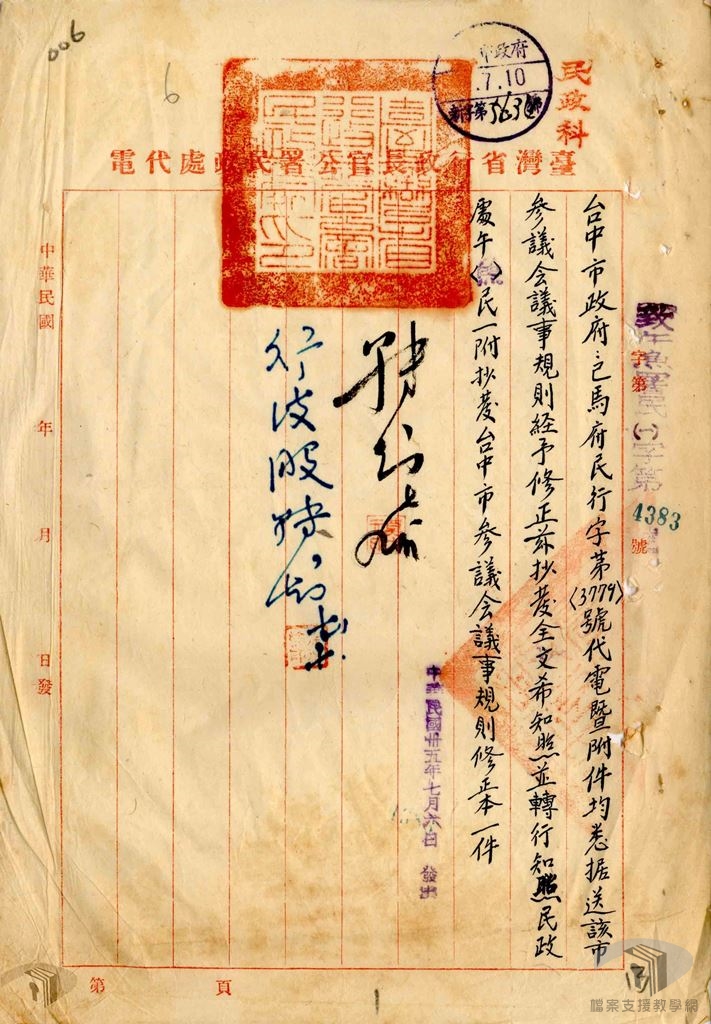 006
6
市政府
7.10
字第563號
民政科
臺灣省行政長官公署民政處代電
字第
(一)字第
4383
號
台中市政府已馬府民行字第(3779)號代電暨附件均悉据送該市
參議会議事規則経予修正茲抄發全文希知照並轉行知照民政
處午()民一附抄發台中市參議会議事規則修正本一件
中華民國卅五年七月六日 發出
中華民國 年 月 日發
第 頁
1
13
檔案支援教學網